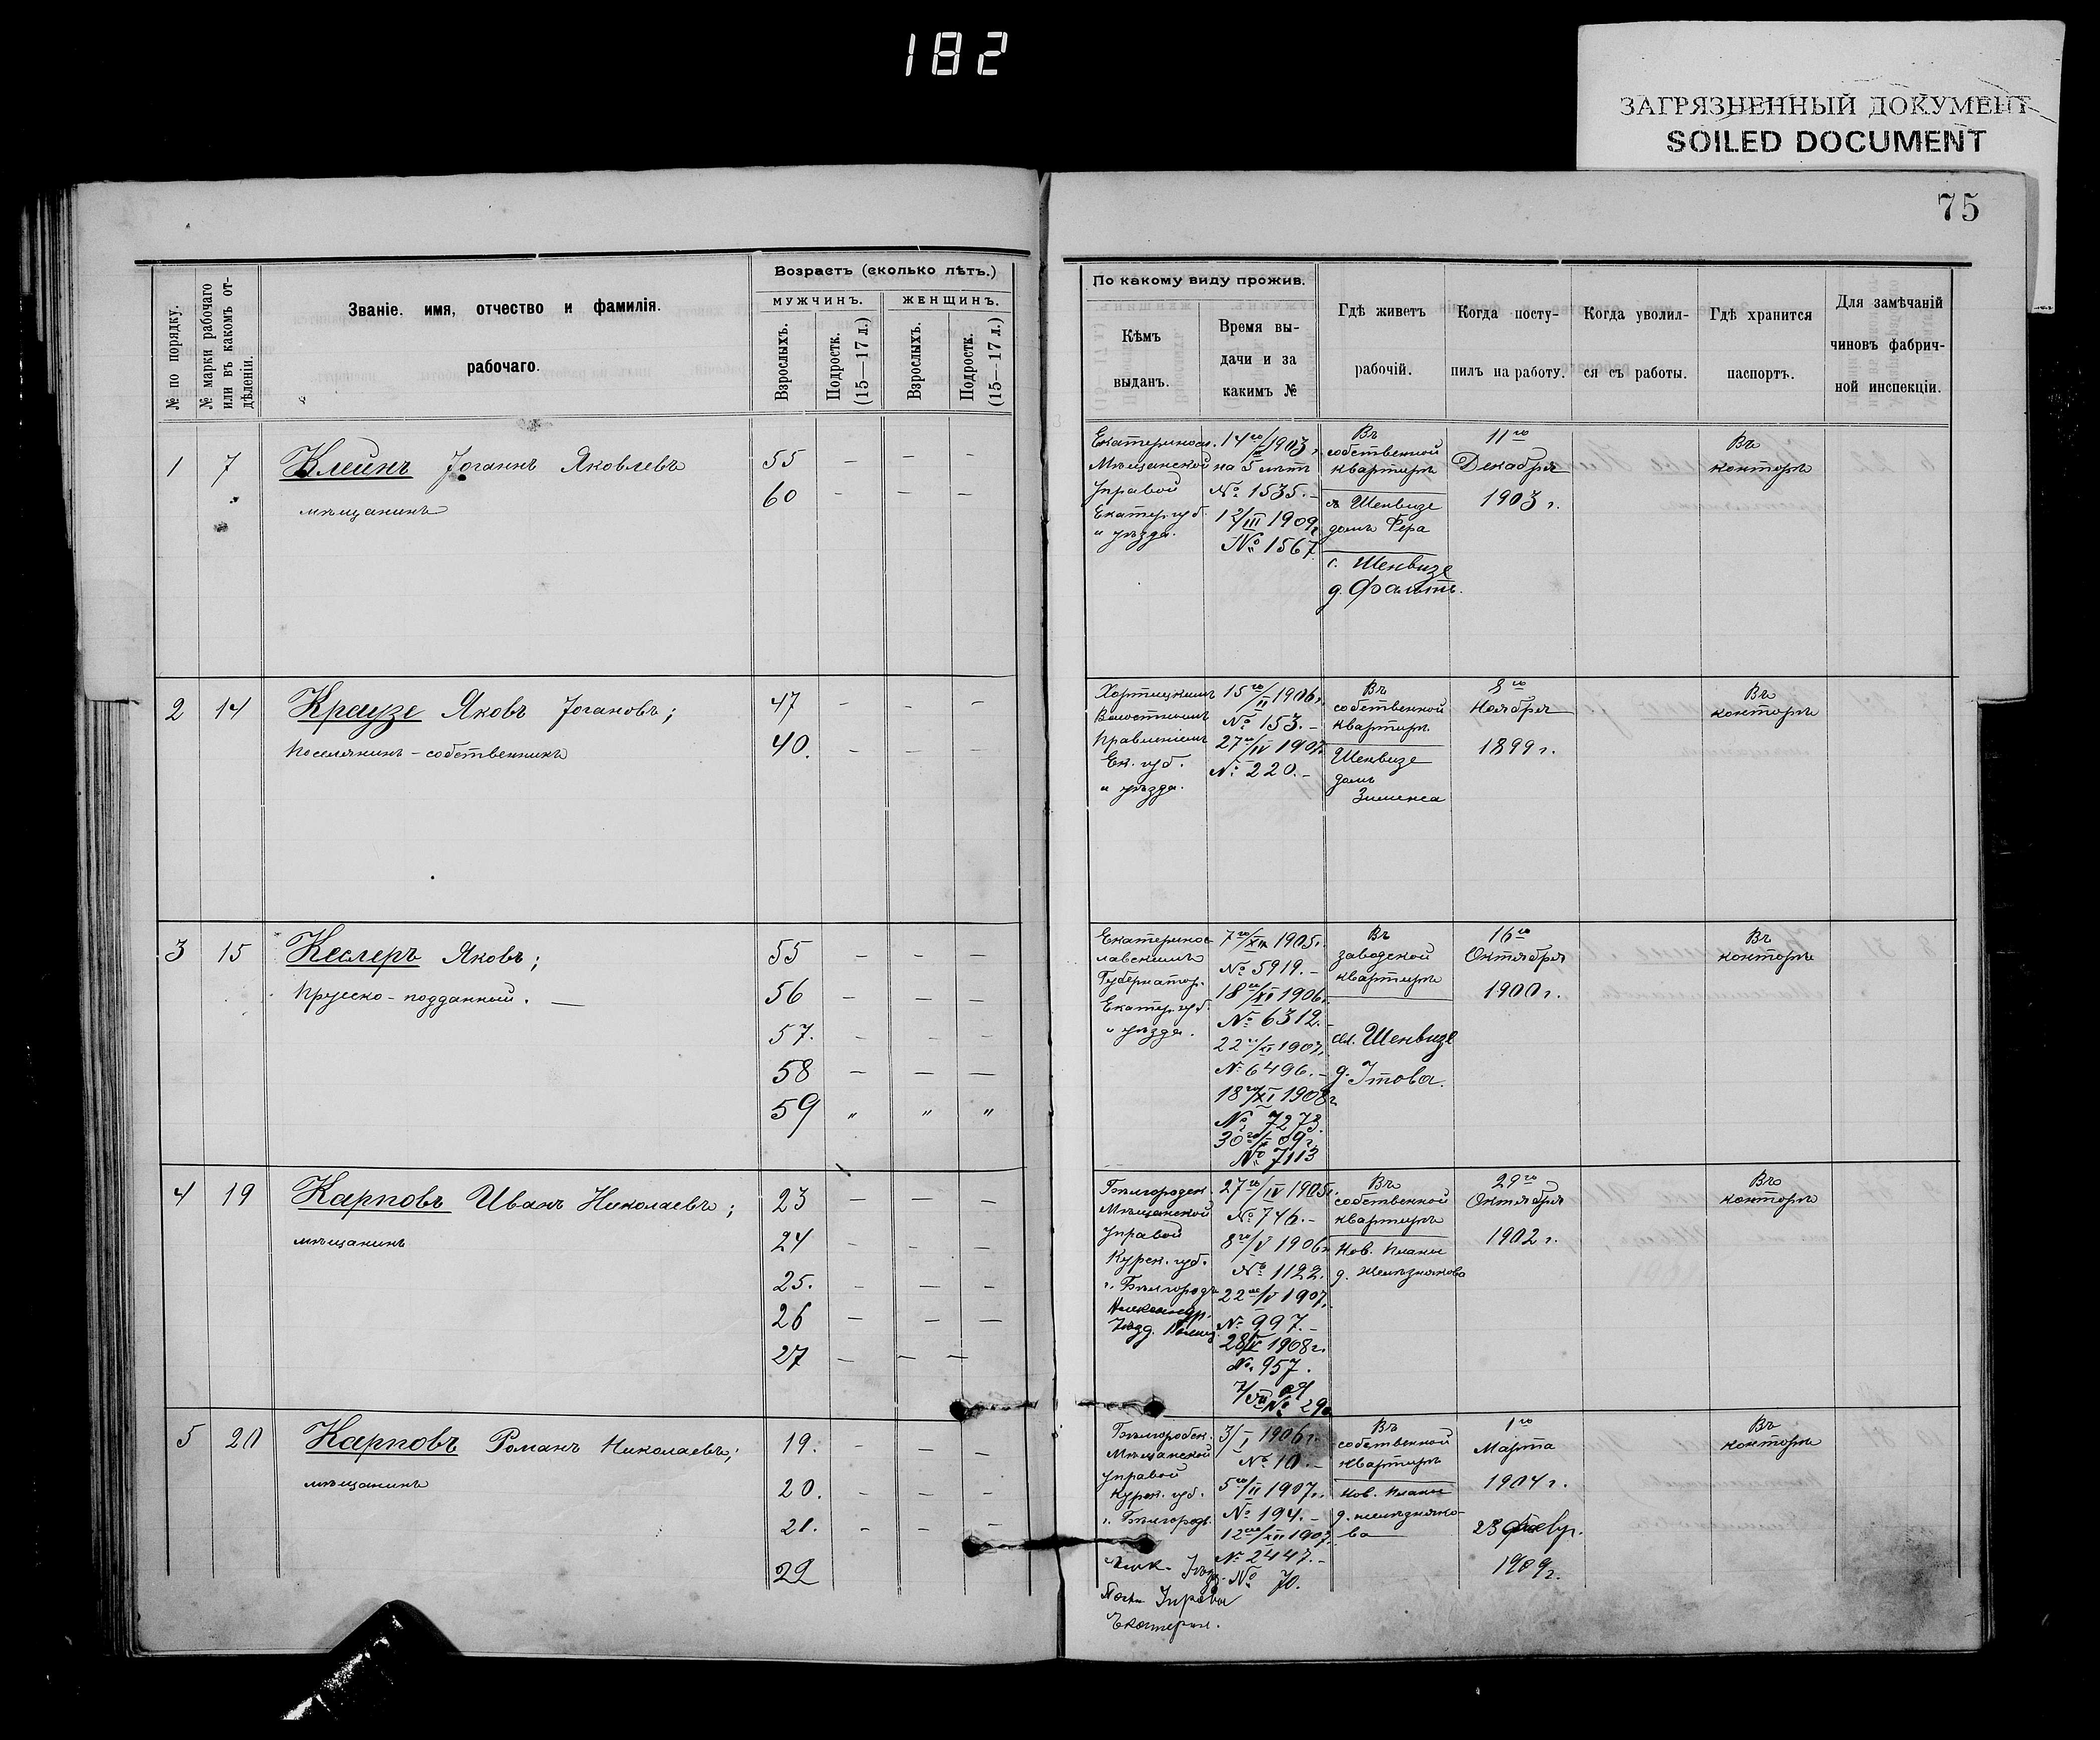 182
ЗАГРЯЗНЕННЫЙ ДОКУМЕНТ
SOILED DOCUMENT
75
№ по порядку.
№ марки рабочаго или въ какомъ отдѣленіи.
Званіе, имя, отчество и фамилія.
рабочаго.
Возрастъ (сколько лѣтъ.)
МУЖЧИНЪ.
ЖЕНЩИНЪ.
Взрослыхъ.
Подростк. (15—17 л.)
Взрослыхъ.
Подростк. (15—17 л.)
По какому виду прожив.
Кѣмъ
выданъ.
Время вы-
дачи и за
какимъ №
Гдѣ живетъ
рабочій.
Когда посту-
пилъ на работу.
Когда уволил-
ся съ работы.
Гдѣ хранится
паспортъ.
Для замѣчаній
чиновъ фабрич-
ной инспекціи.
1 7 Клейнъ Іоганнъ Яковлевъ
мѣщанинъ
55 — — —
60 — — —
Екатериносл.
Мѣщанской
Управой
Екатер. губ.
и уѣзда.
1903
на 5 лѣтъ
№ 1535.—
12/III 1909 г.
№ 1567.
Въ
собственной
квартирѣ
Шенвизе
домъ Фера
с. Шенвизе
11го
Декабря
1903 г.
Въ
конторѣ
2 14 Краузе Яковъ Іогановъ;
поселянинъ-собственникъ
47 — — —
40. — — —
Хортицкимъ
Волостнымъ
Правленіемъ
Ек. губ.
и уѣзда.
15го/II 1906 г.
№ 153.—
27го/IV 1907 г.
№ 220.—
Въ
собственной
квартирѣ
Шенвизе
домъ
Зименса
8го
Ноября
1899 г.
Въ
конторѣ
3 15 Кеслеръ Яковъ;
Прусско-подданный. —
55 — — —
56 — — —
57. — — —
58 — — —
59 „ „ „
Екатеринос-
лавскимъ
Губернатор.
Екатер. губ.
и уѣзда.
1905 г.
№ 5919.—
18го/XI 1906 г.
№ 6312.—
22го/XI 1907 г.
№ 6496.—
18го/XI 1908 г.
№ 7273.
№ 7113
Въ
заводской
квартирѣ
Шенвизе
16го
Октября
1900 г.
Въ
конторѣ
4 19 Карповъ Иванъ Николаевъ;
мѣщанинъ
23 — — —
24 — — —
25. — — —
26 — — —
27 — — —
Бѣлгородск.
Мѣщанской
Управой
Курск. губ.
г. Бѣлгородъ
27го/IV 1905 г.
№ 746.—
8го/V 1906 г.
№ 1122.
22го/V 1907 г.
№ 997.—
1908 г.
№ 957.
Въ
собственной
квартирѣ
Нов. планы
д. Желѣзнякова
29го
Октября
1902 г.
Въ
конторѣ
5 20 Карповъ Романъ Николаевъ;
мѣщанинъ
19. — — —
20. — — —
21. — — —
22
Бѣлгородск.
Мѣщанской
Управой
Курск. губ.
г. Бѣлгородъ.
Екатерин.
3/I 1906 г.
№ 10.—
5го/II 1907 г.
№ 194.—
12го/XII 1907 г.
№ 2447.—
№ 70.
Въ
собственной
квартирѣ
Нов. планы
д. Желѣзняко-
ва
1го
Марта
1904 г.
23 Февр.
1909 г.
Въ
конторѣ